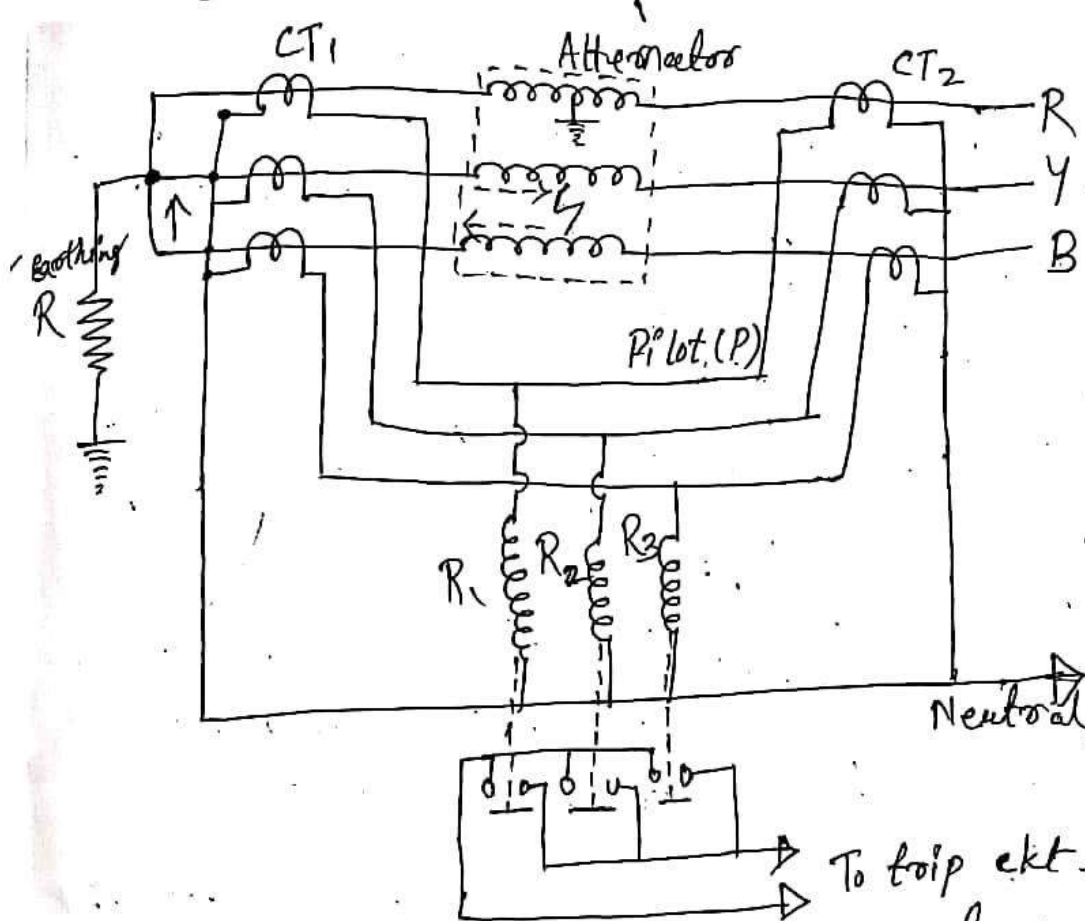 CT1
Alternator
CT2
R
Y
B
Earthing
R
Pilot (P)
R1
R2
R3
Neutral
To trip ckt.